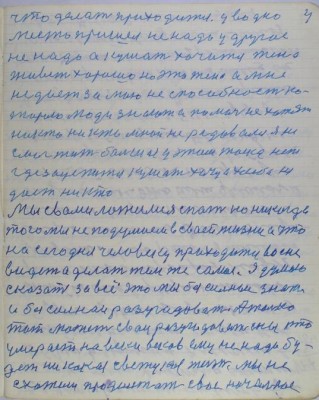 что делат приходится. у водно
место пришел не надо у другое
не надо а кушат хочится тело
живит хорошо но это тело а мне
не дает за мою не способност ко-
торую люди знают а помоч не хотят
никто ни кто мной не радовался я не
смог жит болше у этим тоже нет
где за хотится кушат хлеба ни
даст ни кто
Мы свами ложимся спат но никогда
того мы не подумили в своей жизни а это
на сегодня человеку приходится восне
видет а делат тем же самое. Я думаю
сказат за всё это мы бы сильные знат
и бы сильной разугадоват. А толко
тот может свои разугадоват сны кто
умерает на веки веков ему не надо бу-
дет ни какой свет уже жит. мы не
схотели продолжат свое началное